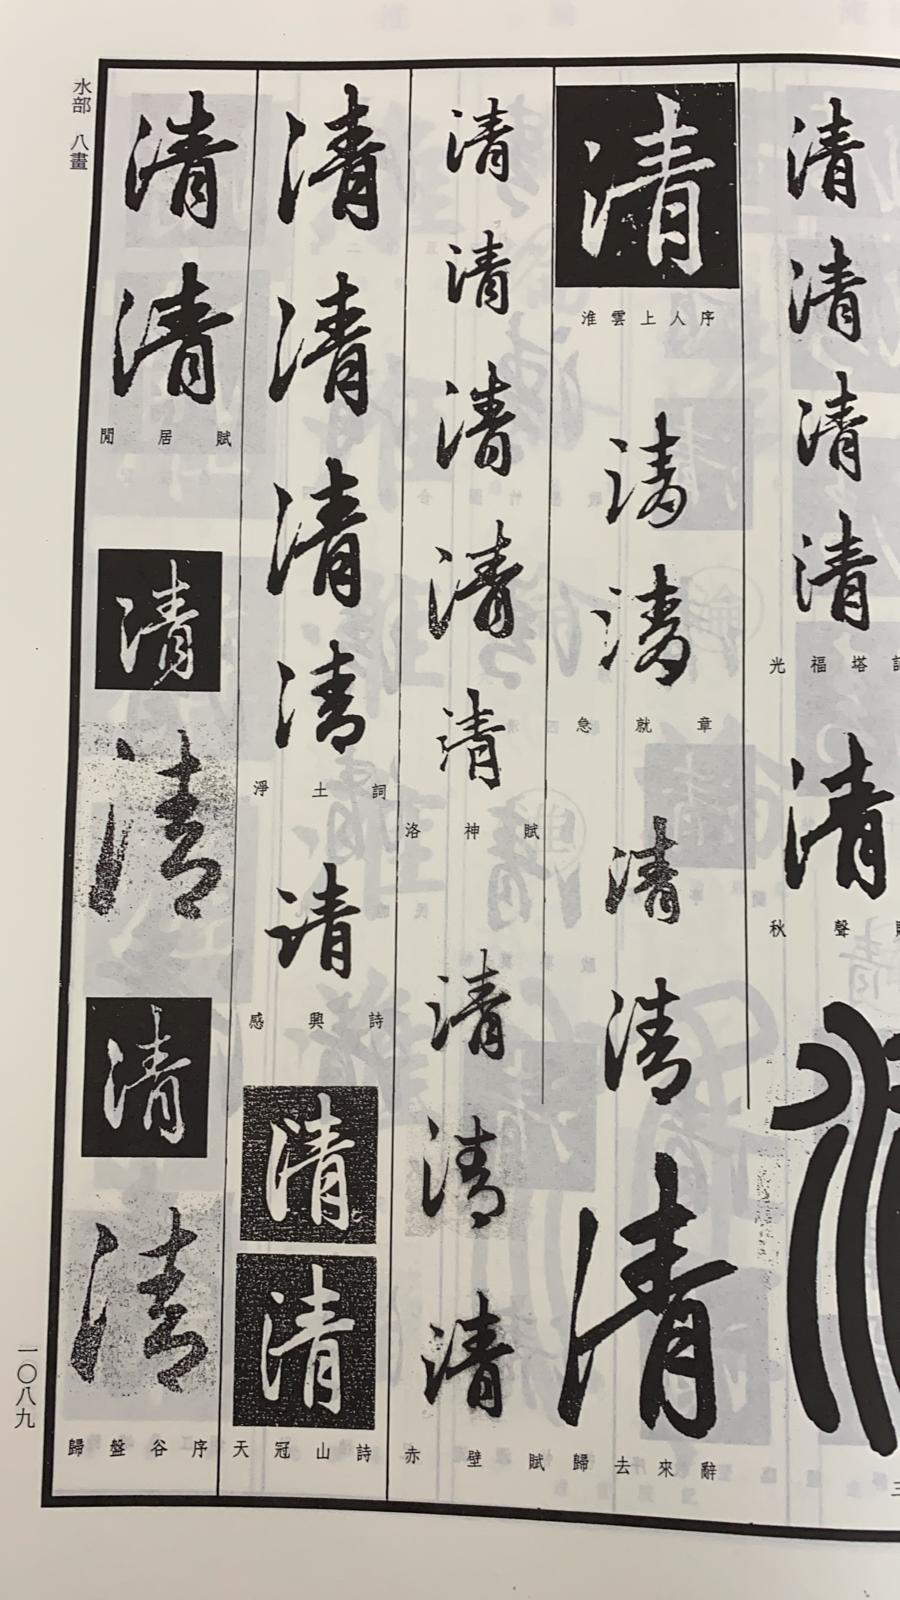 清
清
清
清
光福塔
清
秋聲
清
淮雲上人序
清
清
急就章
清
清
清
歸去來辭
清
清
清
清
清
洛神賦
清
清
清
赤壁賦
清
清
清
清
淨土詞
清
感興詩
清
清
天冠山詩
清
清
閒居賦
清
清
清
清
歸盤谷序
水部 八畫
一〇八九